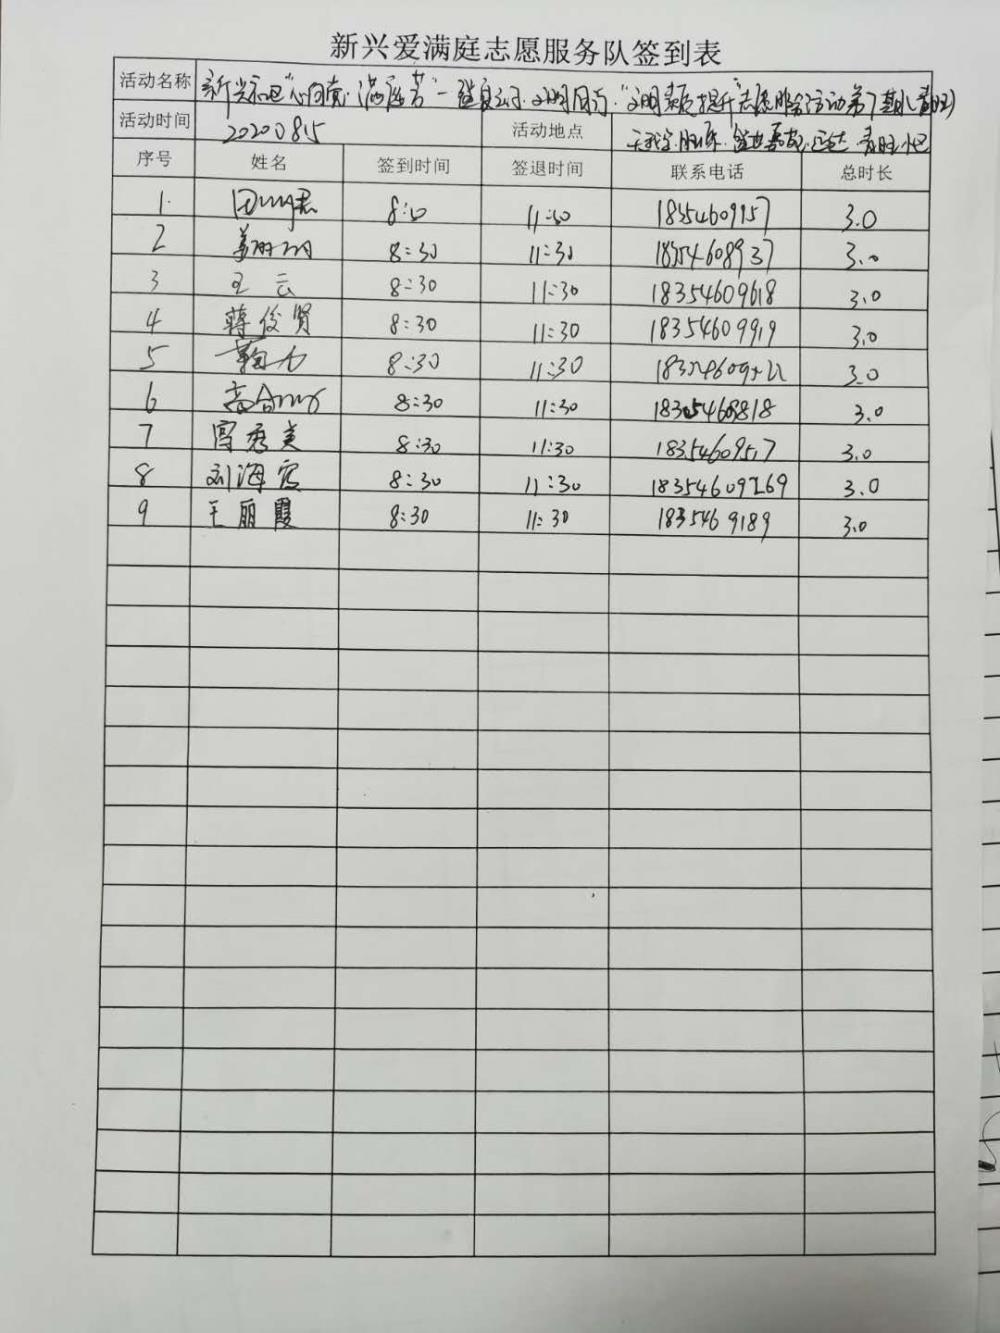 新兴爱满庭志愿服务队签到表
活动名称 新兴社区"心向党·满庭芳"一 文明同行·"文明素质提升"志愿服务活动第7期(青旺)
活动时间 20200815 活动地点 青旺小区
序号 姓名 签到时间 签退时间 联系电话 总时长
1. 8:30 11:30 18354609957 3.0
2 8:30 11:30 18354608937 3.0
3 王云 8:30 11:30 18354609618 3.0
4 蒋俊贤 8:30 11:30 18354609919 3.0
5 8:30 11:30 3.0
6 8:30 11:30 3.0
7 秀美 8:30 11:30 18354609517 3.0
8 刘海霞 8:30 11:30 18354609269 3.0
9 王丽霞 8:30 11:30 1835469189 3.0